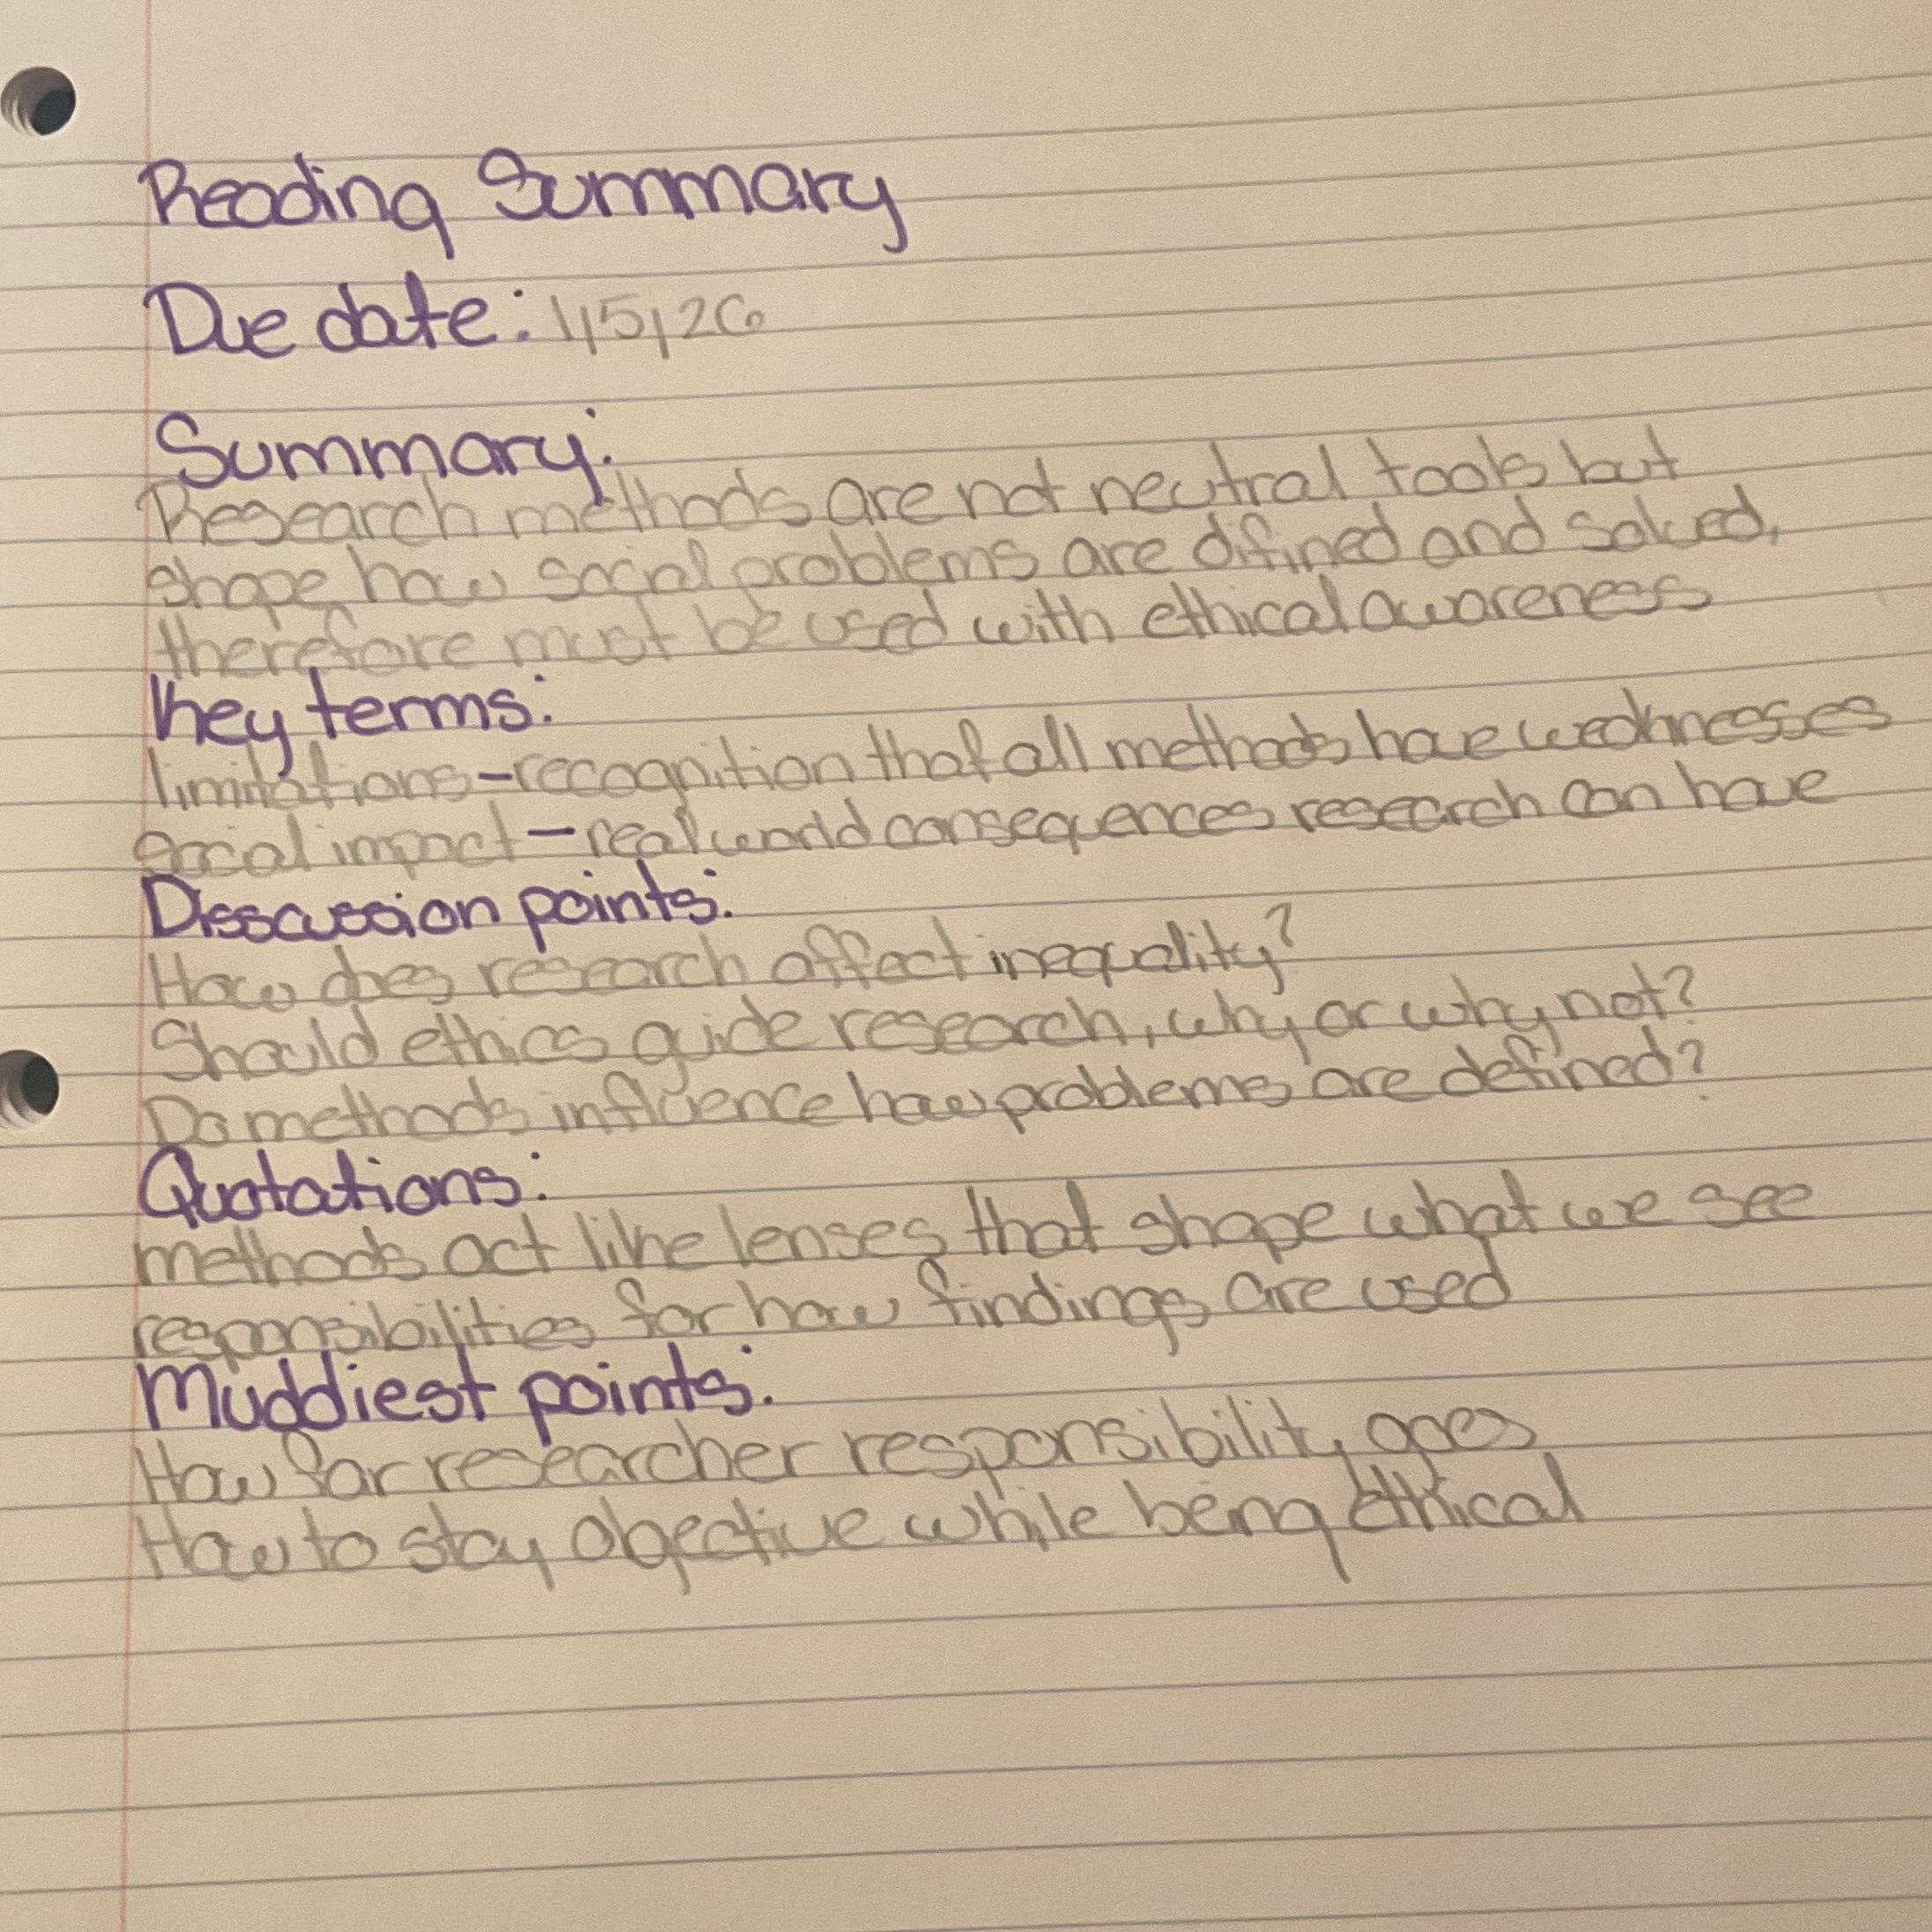 Reading Summary
Due date: 1/5/26
Summary:
Research methods are not neutral tools but
shape how social problems are difined and solved,
therefore must be used with ethical awareness
Key terms:
limitations-recognition that all methods have weaknesses
social impact-real world consequences research can have
Disscussion points:
How does research affect inequality?
Should ethics guide research, why or why not?
Do methods influence how problems are defined?
Quotations:
methods act like lenses that shape what we see
responsibilities for how findings are used
Muddiest points:
How far researcher responsibility goes
How to stay objective while being ethical